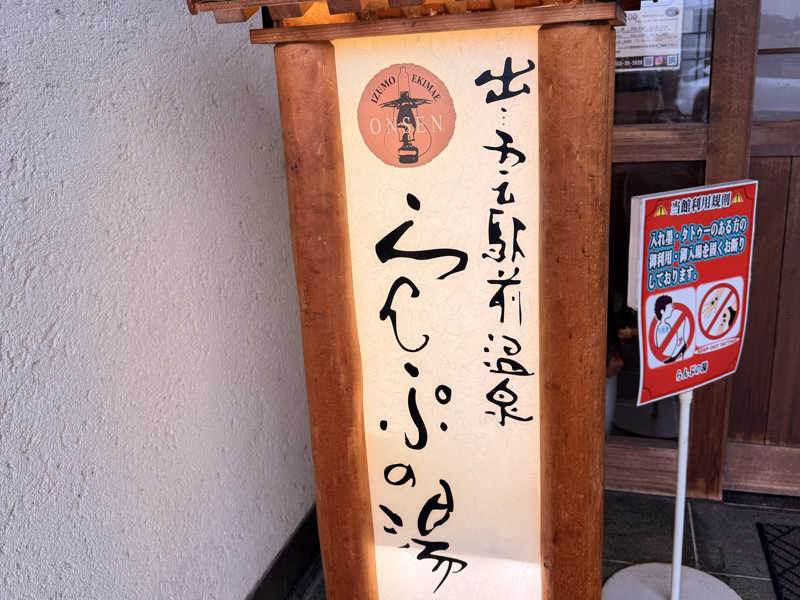 出雲駅前温泉
らんぷの湯
IZUMO EKIMAE
ONSEN
当館利用規則
入れ墨・タトゥーのある方の
御利用・御入場を固くお断り
しております。
らんぷの湯